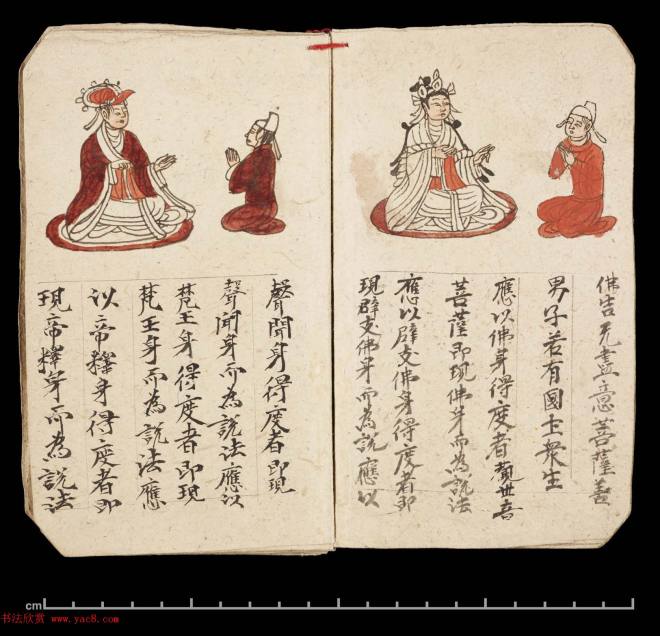 佛告无盡意菩薩善
男子若有國土衆生
應以佛身得度者觀世音
菩薩即現佛身而為說法
應以辟支佛身得度者即
現辟支佛身而為說應以
聲聞身得度者即現
聲聞身而為說法應以
梵王身得度者即現
梵王身而為說法應
以帝釋身得度者即
現帝釋身而為說法
cm
书法欣赏 www.yac8.com